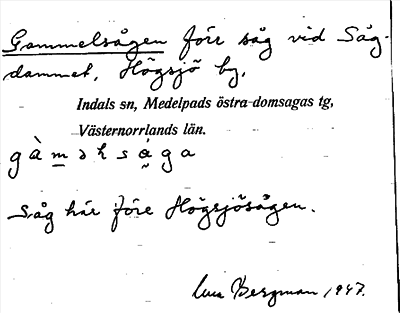 Gammelsågen förr såg vid Såg-
dammet, Högsjö by,
Indals sn, Medelpads östra domsagas tg,
Västernorrlands län.
Såg här före Högsjösågen.
Bergman 1947.